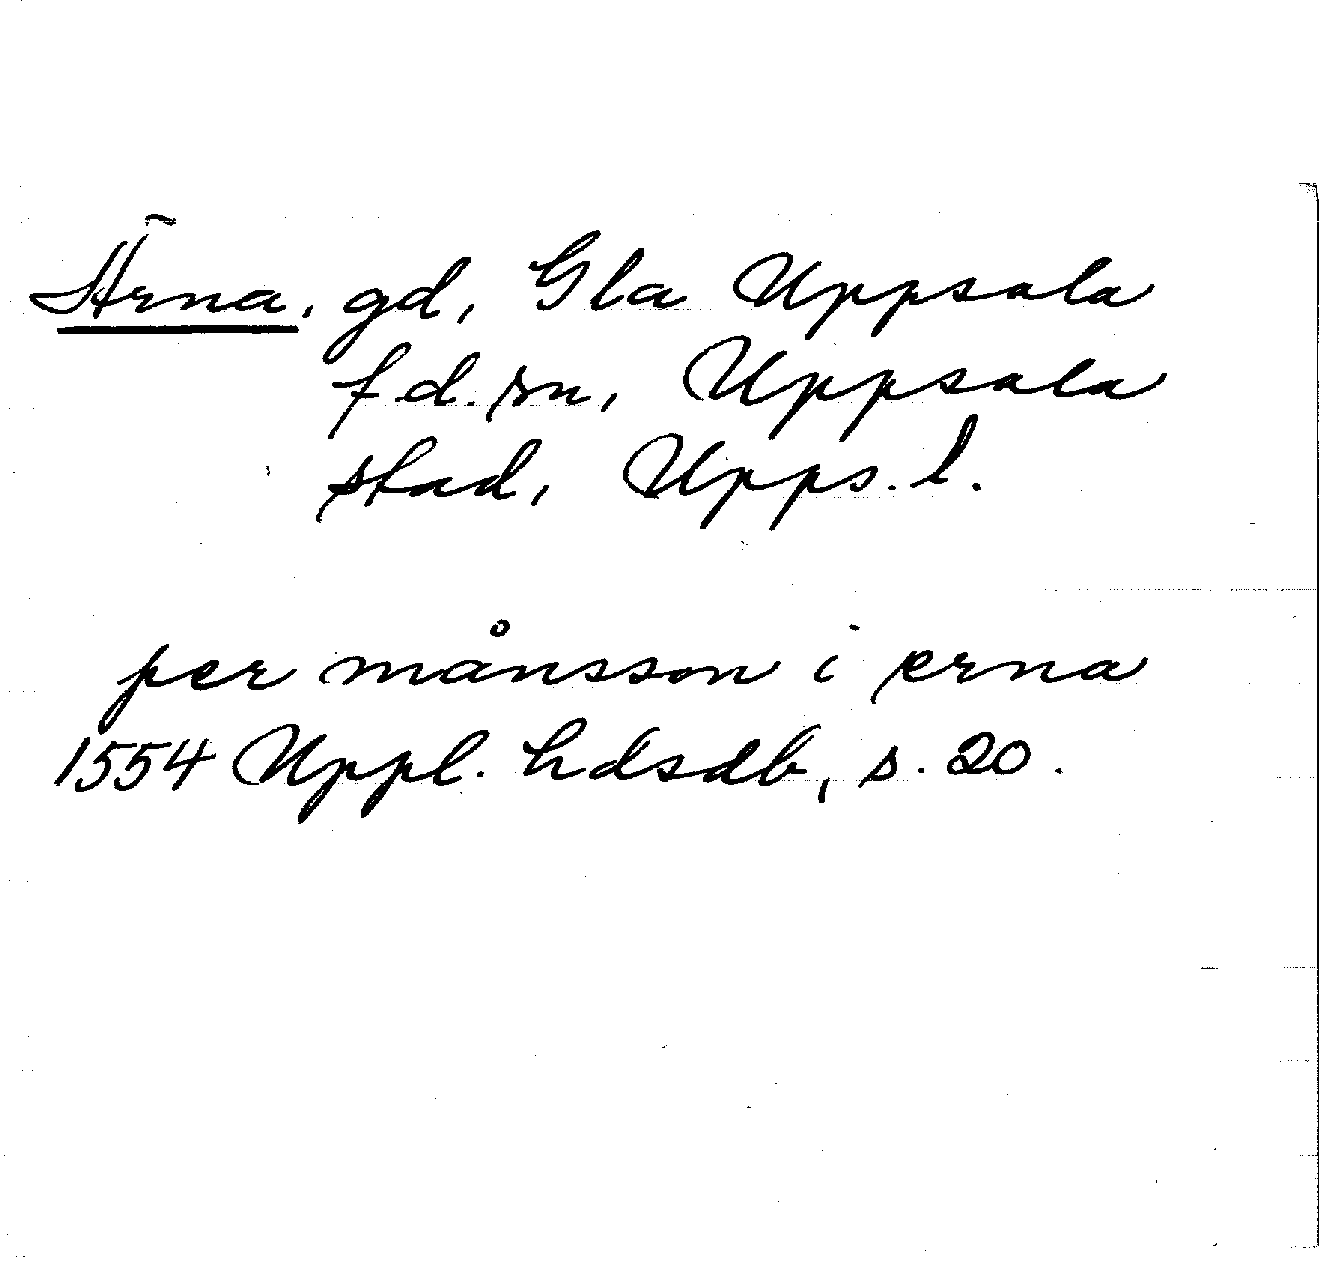 Ärna, gd, Gla Uppsala
f.d. sn, Uppsala
stad, Upps. l.
per månsson i erna
1554 Uppl. hdsdb, s. 20.